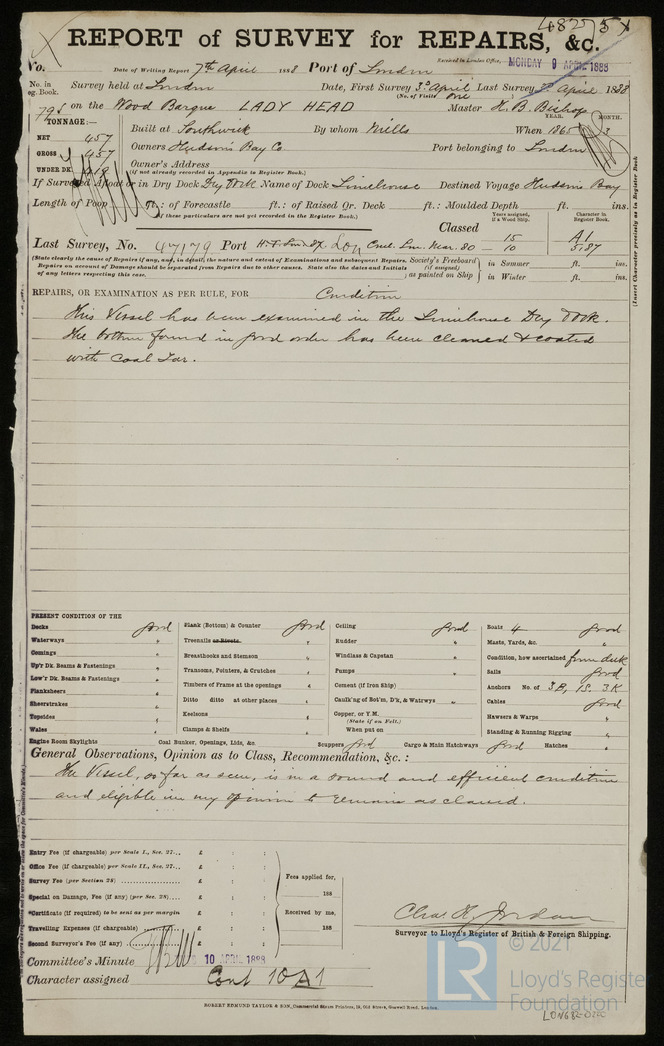 48275
REPORT of SURVEY for REPAIRS, &c.
Received in London Office, MONDAY 9 APRIL 1888
No. Date of Writing Report 7th April 1888 Port of London
No. in Reg. Book. Survey held at London Date, First Survey 3d April Last Survey April 1888
(No. of Visits One)
795 on the Wood Barque LADY HEAD Master H. B. Bishop
TONNAGE:— YEAR. MONTH.
NET 457 Built at Southwick By whom Mills When 1865 3
GROSS 457 Owners Hudson's Bay Co Port belonging to London
UNDER DK. Owner's Address
(if not already recorded in Appendix to Register Book.)
If Surveyed Afloat or in Dry Dock Dry Dock Name of Dock Limehouse Destined Voyage Hudson's Bay
Length of Poop ft.: of Forecastle ft.: of Raised Qr. Deck ft.: Moulded Depth ft. ins.
(If these particulars are not yet recorded in the Register Book.)
Classed
Years assigned, if a Wood Ship. Character in Register Book.
Last Survey, No. 47179 Port Lon 15 A1
10 5,87
(State clearly the cause of Repairs if any, and, in detail, the nature and extent of Examinations and subsequent Repairs.
Repairs on account of Damage should be separated from Repairs due to other causes. State also the dates and Initials
of any letters respecting this case.)
Society's Freeboard (if assigned) as painted on Ship in Summer ft. ins.
in Winter ft. ins.
(Insert Character precisely as in Register Book
REPAIRS, OR EXAMINATION AS PER RULE, FOR Condition
This Vessel has been examined in the Limehouse Dry Dock.
The bottom found in good order has been cleaned & coated
with Coal Tar.
PRESENT CONDITION OF THE
Decks good
Waterways "
Comings "
Up'r Dk. Beams & Fastenings "
Low'r Dk. Beams & Fastenings "
Planksheers "
Sheerstrakes "
Topsides "
Wales "
Engine Room Skylights
Plank (Bottom) & Counter good
Treenails or Rivets "
Breasthooks and Stemson "
Transoms, Pointers, & Crutches "
Timbers of Frame at the openings "
Ditto ditto at other places "
Keelsons "
Clamps & Shelfs "
Coal Bunker, Openings, Lids, &c.
Ceiling good
Rudder "
Windlass & Capstan "
Pumps "
Cement (if Iron Ship)
Caulk'ng of Bot'm, D'k, & Watrwys "
Copper, or Y.M.
(State if on Felt.)
When put on
Scuppers good Cargo & Main Hatchways good Hatches "
Boats 4 good
Masts, Yards, &c. "
Condition, how ascertained from deck
Sails good
Anchors No. of 3B, 1S, 3K
Cables good
Hawsers & Warps "
Standing & Running Rigging "
General Observations, Opinion as to Class, Recommendation, &c. :
The Vessel, so far as seen, is in a sound and efficient condition
and eligible in my opinion to remain as classed.
Entry Fee (if chargeable) per Scale I., Sec. 27... £ : :
Office Fee (if chargeable) per Scale II., Sec. 27... £ : :
Survey Fee (per Section 28) £ : :
Special on Damage, Fee (if any) (per Sec. 28) £ : :
*Certificate (if required) to be sent as per margin £ : :
Travelling Expenses (if chargeable) £ : :
Second Surveyor's Fee (if any) £ : :
Fees applied for,
188
Received by me,
188
Chas H. Jordan
Surveyor to Lloyd's Register of British & Foreign Shipping.
Committee's Minute 10 APRIL 1888
Character assigned Cont 10 A1
ROBERT EDMUND TAYLOR & SON, Commercial Steam Printers, 19, Old Street, Goswell Road, London.
LR © 2021
Lloyd's Register
Foundation
LON682-0200